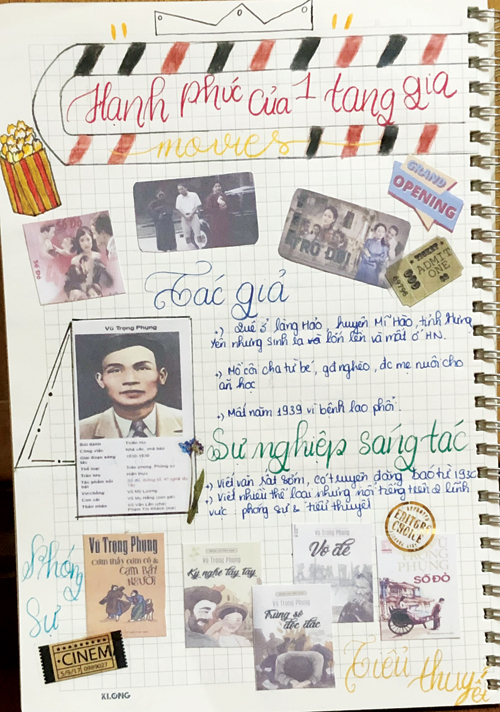 Hạnh phúc của 1 tang gia
movies
GRAND
OPENING
TICKET
ADMIT
ONE
TRÒ ĐỜI
Tác giả
Vũ Trọng Phụng
•, Quê ở làng Hảo, huyện Mĩ Hào, tỉnh Hưng
Yên nhưng sinh ra và lớn lên và mất ở HN.
•, Mồ côi cha từ bé, gđ nghèo, đc mẹ nuôi cho
ăn học
•, Mất năm 1939 vì bệnh lao phổi.
Sự nghiệp sáng tác
•, Viết văn rất sớm, có truyện đăng báo từ 1930
•, Viết nhiều thể loại nhưng nổi tiếng trên 2 lĩnh
vực: phóng sự & tiểu thuyết
Bút danh Thiên Hư
Công việc Nhà văn, nhà báo
1930-1939
Thể loại
Phóng
Sự
Vũ Trọng Phụng
CẠM BẪY
NGƯỜI
Kỹ nghệ lấy Tây
Vũ Trọng Phụng
Trúng số
độc đắc
Vỡ đê
EDITOR'S
CHOICE
VŨ
TRỌNG
PHỤNG
SỐ ĐỎ
CINEM
Tiểu thuyết
KLONG